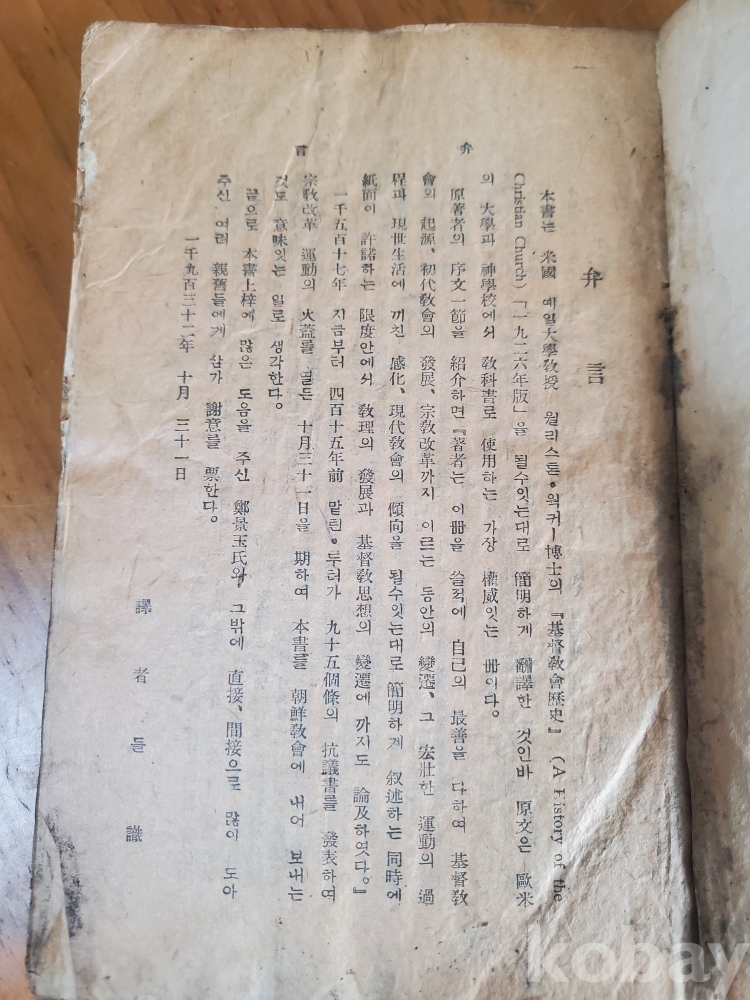 弁言
弁言
本書는 米國 예일大學敎授 월리스톤•웍커ー博士의 『基督敎會歷史』 (A History of the
Christian Church)「一九二六年版」을 될수잇는대로 簡明하게 飜譯한 것인바 原文은 歐米
의 大學과 神學校에서 敎科書로 使用하는 가장 權威잇는 冊이다。
原著者의 序文一節을 紹介하면『著者는 이冊을 쓸적에 自己의 最善을 다하여 基督敎
會의 起源、初代敎會의 發展、宗敎改革까지 이르는 동안의 變遷、그 宏壯한 運動의 過
程과 現世生活에 끼친 感化、現代敎會의 傾向을 될수잇는대로 簡明하게 叙述하는 同時에
紙面이 許諾하는 限度안에서 敎理의 發展과 基督敎思想의 變遷에 까지도 論及하엿다。』
一千五百十七年 지금부터 四百十五年前 맡틘•루터가 九十五個條의 抗議書를 發表하여
宗敎改革 運動의 火蓋를 열든 十月三十一日을 期하여 本書를 朝鮮敎會에 내어 보내는
것도 意味잇는 일로 생각한다。
끝으로 本書上梓에 많은 도음을 주신 鄭景玉氏와 그밖에 直接、間接으로 많이 도아
주신 여러 親舊들에게 삼가 謝意를 票한다。
一千九百三十二年 十月 三十一日
譯者들識
kobay